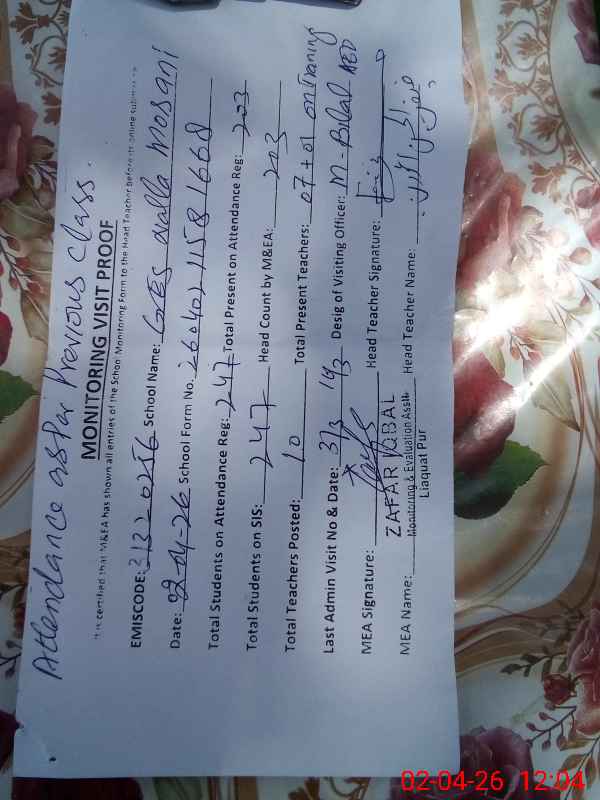 Attendance as par Previous class.
MONITORING VISIT PROOF
It is certified that M&EA has shown all entries of the School Monitoring Form to the Head Teacher before its online submission
EMISCODE: 31320256 School Name: GES Walla Morani
Date: 02-04-26 School Form No. 26040211581668
Total Students on Attendance Reg: 247 Total Present on Attendance Reg: 203
Total Students on SIS: 247 Head Count by M&EA: 203
Total Teachers Posted: 10 Total Present Teachers: 07+01 on Traning
Last Admin Visit No & Date: 3/3 Desig of Visiting Officer: M-Bilal AEO
MEA Signature: Head Teacher Signature:
ZAFAR IQBAL
MEA Name: Monitoring & Evaluation Assit. Head Teacher Name:
Liaquat Pur
02-04-26 12:04